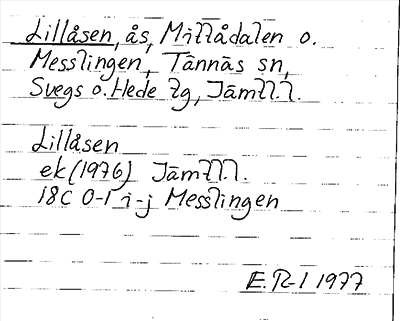 Lillåsen, ås, Mittådalen o.
Messlingen, Tännäs sn,
Svegs o. Hede tg, Jämtl.l.
Lillåsen
ek (1976) Jämtl.l.
18C 0-1 i-j Messlingen
E.R-l 1977